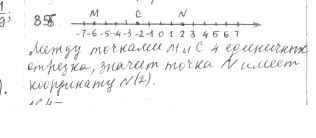 855
M C N
-7-6-5-4-3-2-1 0 1 2 3 4 5 6 7
Между точками М и С 4 единичных
отрезка, значит точка N имеет
координату N(2).